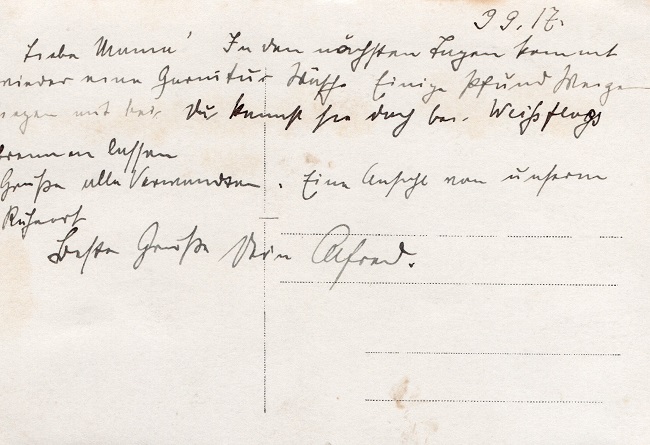 9 9. 17.
Liebe Mama! In den nächsten Tagen kommt
wieder eine Garnitur Wäsche Einige Pfund Weizen
liegen mit bei. Du kannst sie doch bei Weißflogs
brennen lassen
Grüße alle Verwandten. Eine Ansicht von unserm
Ruheort
Beste Grüße Dein Alfred.